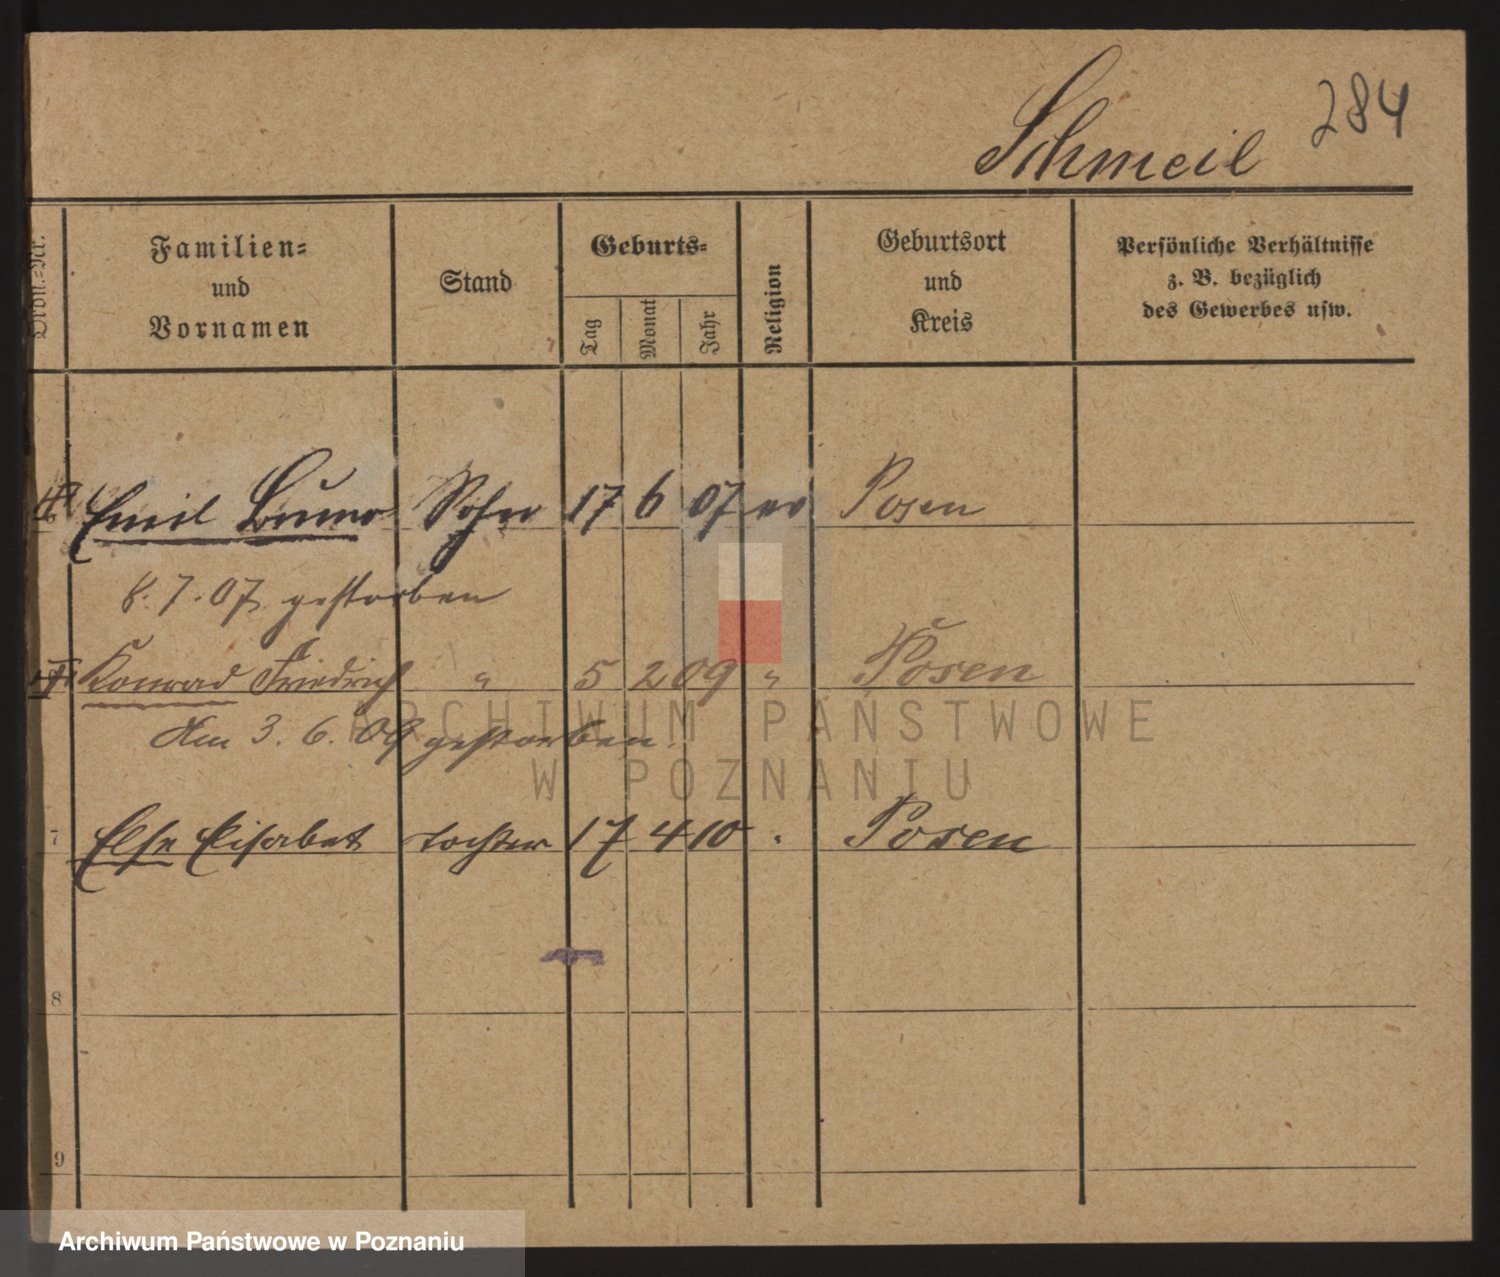 284
Schmeil
Ordn.-Nr.
Familien-
und
Vornamen
Stand
Geburts-
Tag
Monat
Jahr
Religion
Geburtsort
und
Kreis
Persönliche Verhältnisse
z. B. bezüglich
des Gewerbes usw.
Emil Bruno Sohn 17 6 07 ev Posen
8. 7. 07 gestorben
Konrad Friedrich " 5 2 09 " Posen
Am 3. 6. 09 gestorben.
7 Else Elisabet Tochter 17 4 10 " Posen
8
9
ARCHIWUM PAŃSTWOWE
W POZNANIU
Archiwum Państwowe w Poznaniu